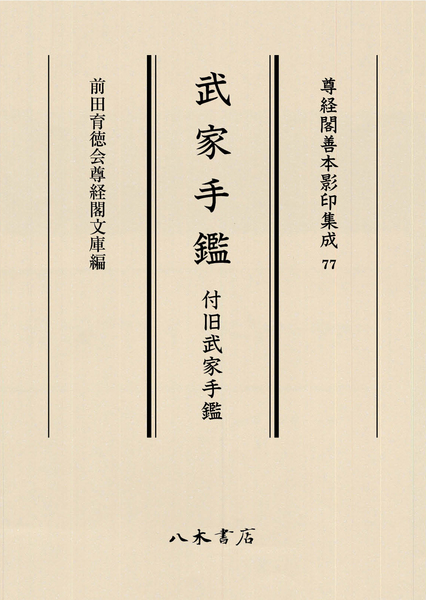 尊経閣善本影印集成 77
武家手鑑 付旧武家手鑑
前田育徳会尊経閣文庫編
八木書店